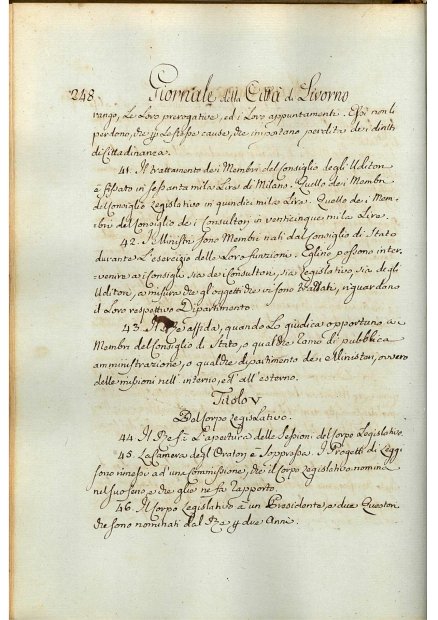 248. Giornale della Città di Livorno
rango, Le Loro prerogative, ed i Loro appuntamenti. Essi non li
perdono, che p le stesse cause, che importano perdita dei diritti
di Cittadinanza.
41. Il trattamento dei Membri del Consiglio degli Uditori
è fissato in sessanta mila Lire di Milano. Quello dei Membri
del Consiglio Legislativo in quindici mila Lire. Quello dei Mem-
bri del Consiglio dei Consultori in venticinque mila Lire.
42. I Ministri sono Membri nati del Consiglio di Stato
durante l'esercizio delle loro funzioni. Eglino possono inter-
venire ai Consigli sia dei Consultori, sia Legislativo, sia degli
Uditori, a misura che gli oggetti che vi sono trattati, riguardano
il Loro respettivo Dipartimento.
43. Il Re affida, quando Lo giudica opportuno a i
Membri del Consiglio di Stato, o qualche ramo di pubblica
amministrazione, o qualche dipartimento dei Ministeri, ovvero
delle missioni nell'interno, ed all'esterno.
Titolo V
Del Corpo Legislativo.
44. Il Re fà L'apertura delle Sessioni del Corpo Legislativo.
45. La Camera degli Oratori è soppressa. I Progetti di Leggi
sono rimessi ad una Commissione, che il Corpo Legislativo nomina
nel suo seno, e che glie ne fa rapporto.
46. Il Corpo Legislativo à un Presidente, e due Questori,
che sono nominati dal Re p due Anni.